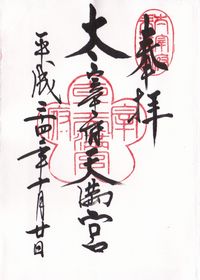 奉拝
太宰府天満宮
平成二四年十一月廿日